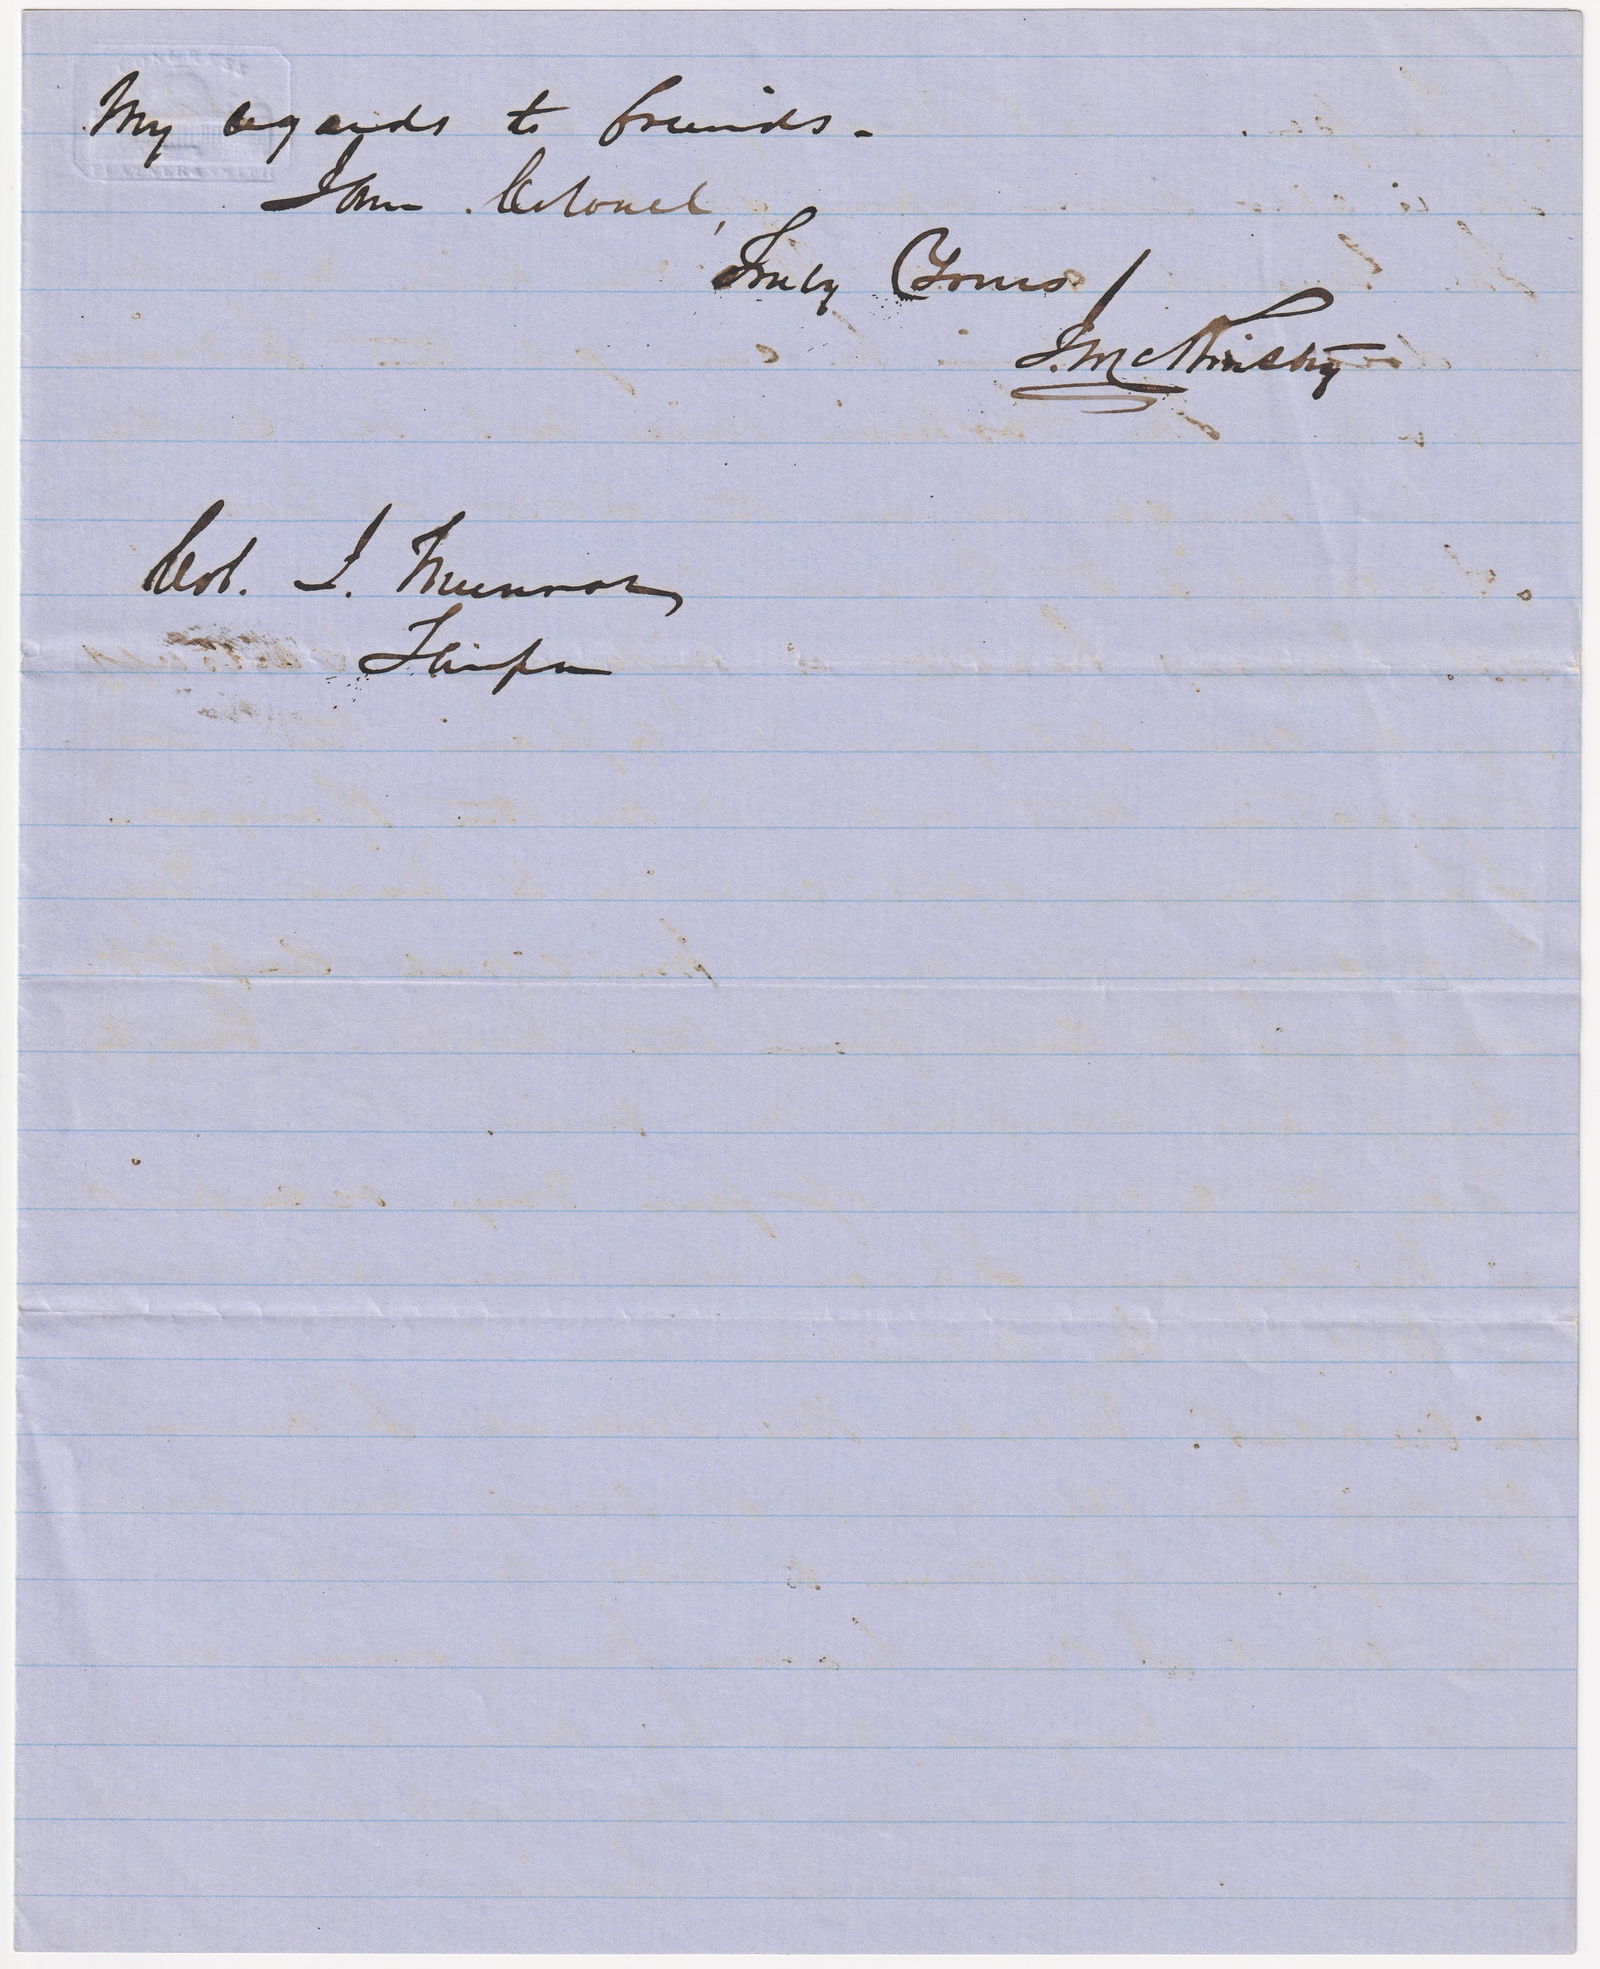 My regards to friends.
I am Colonel,
Truly Yours
Col. J. Munroe
Tampa